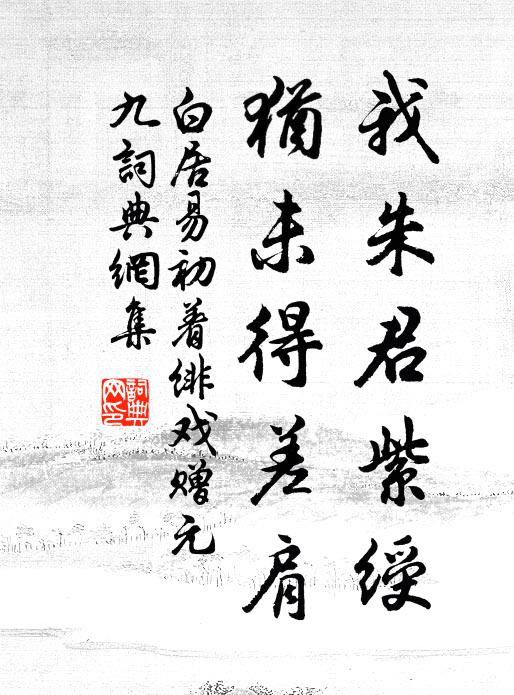 我朱君紫綬
猶未得差肩
白居易初着緋戏赠元
九詞典網集
詞典网印